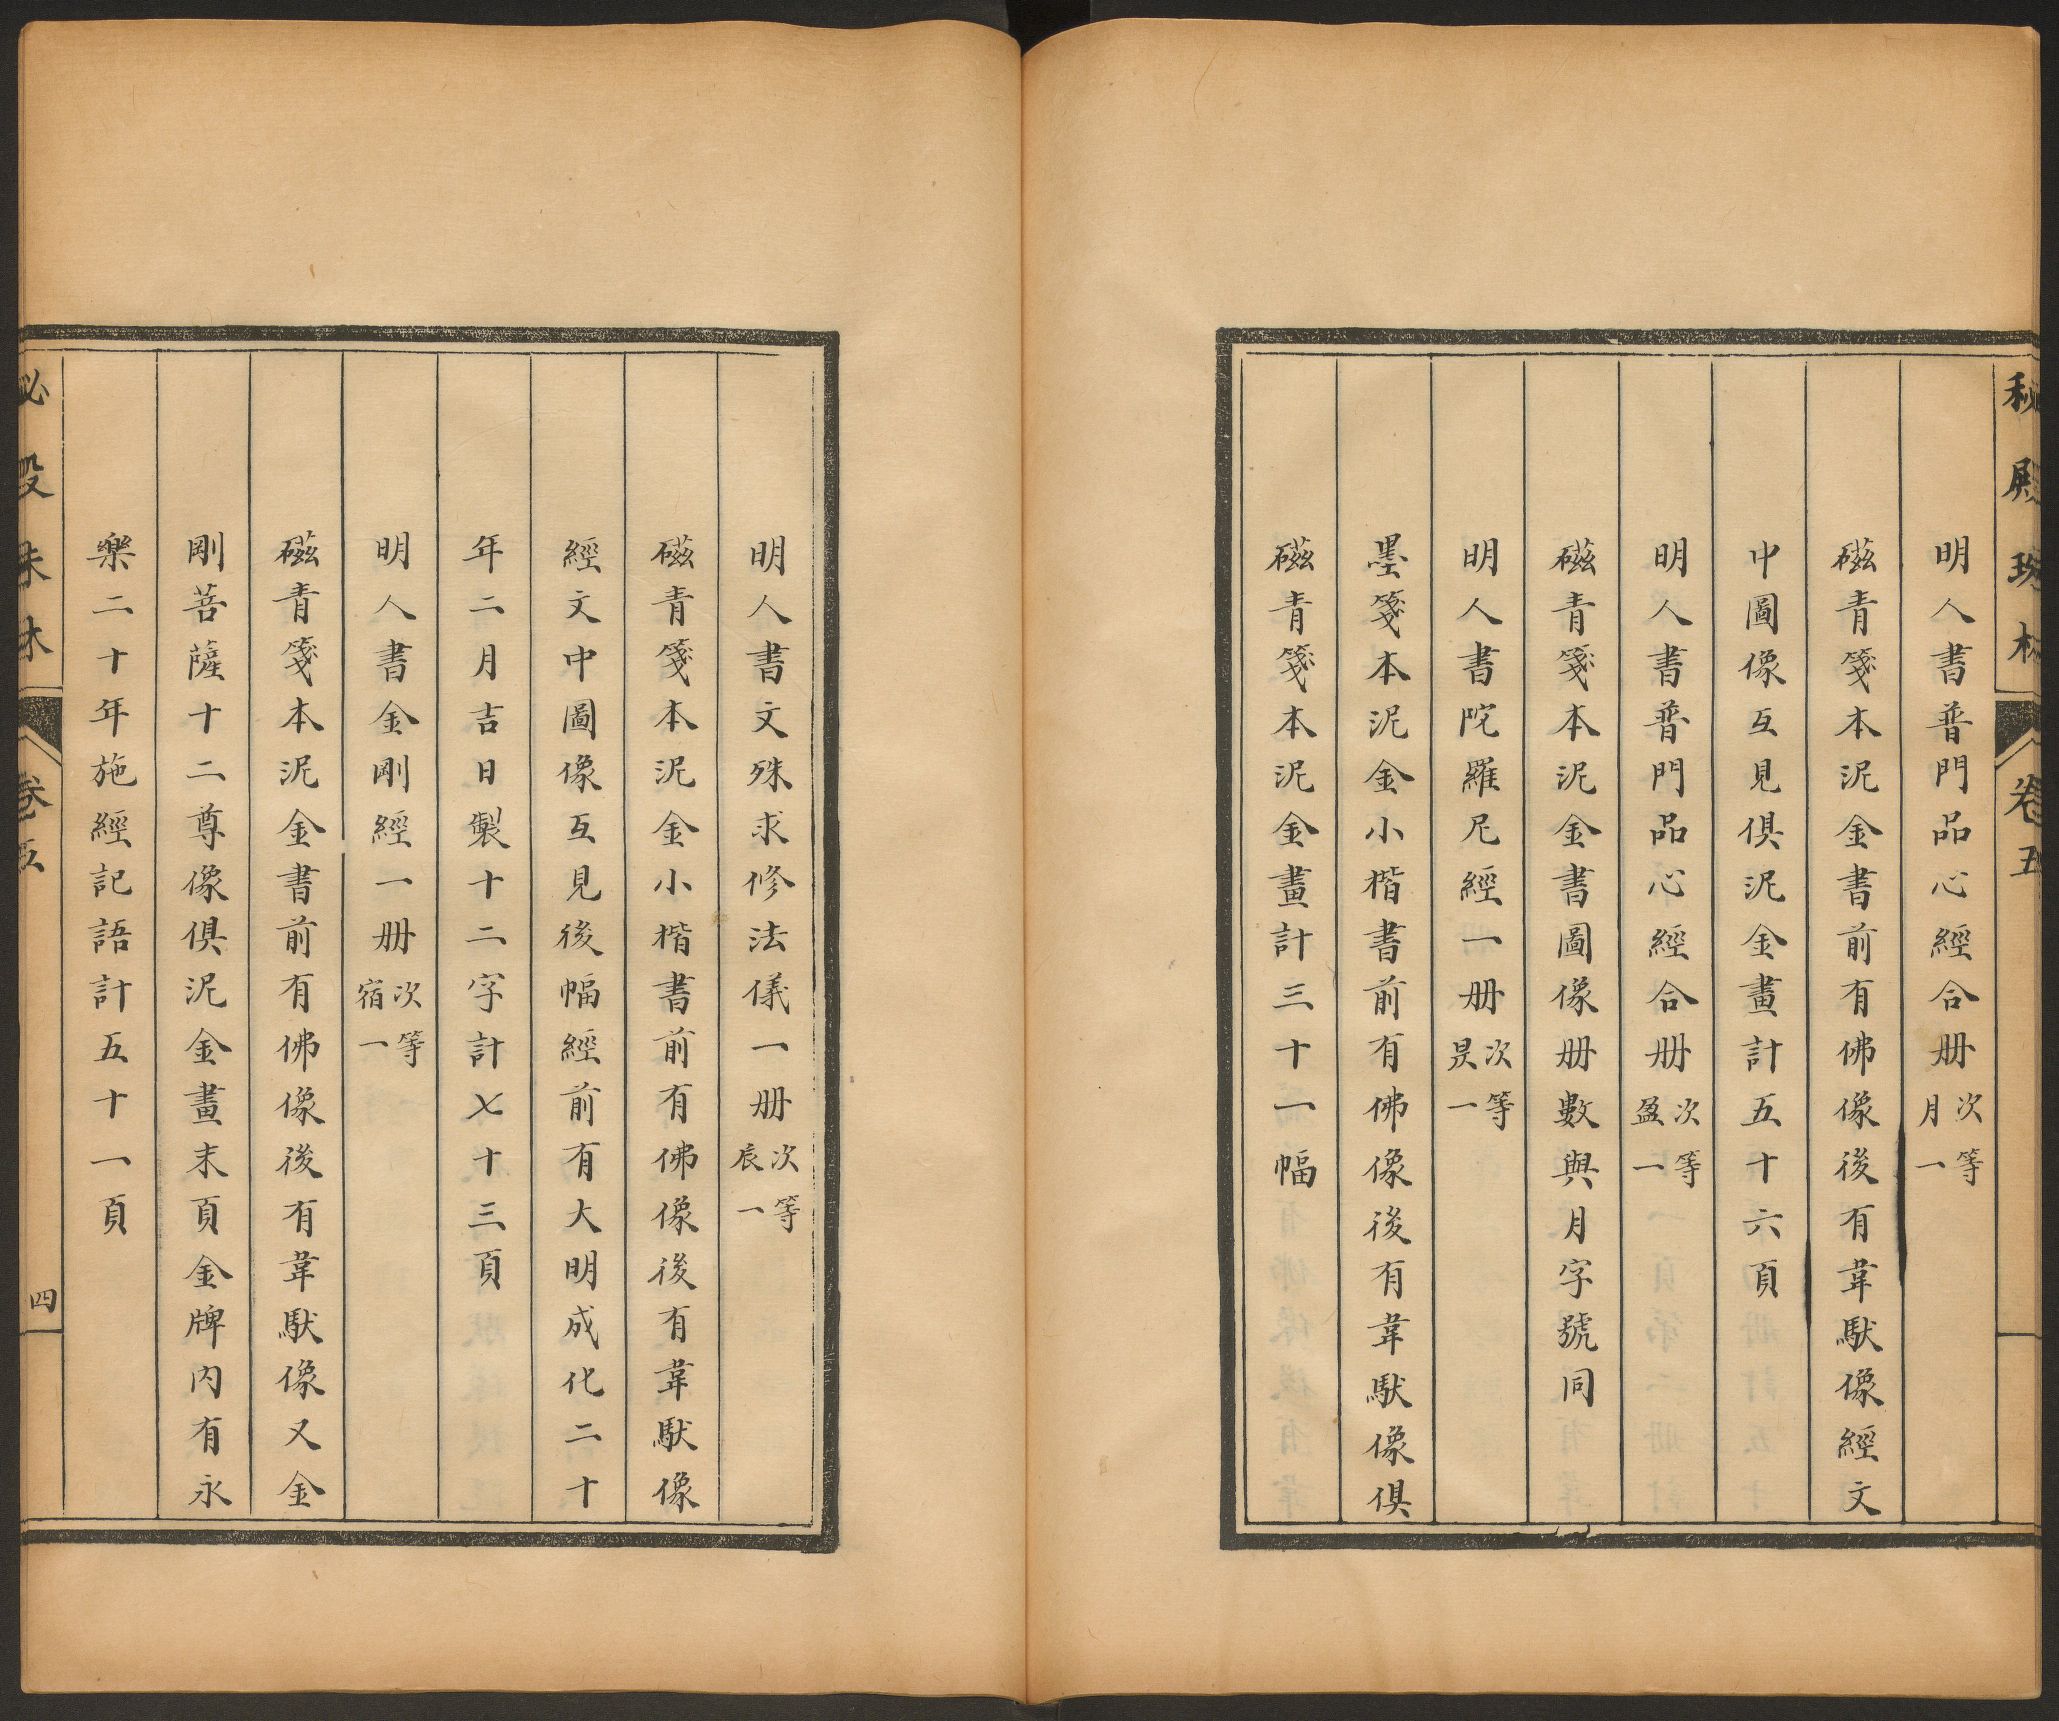 秘殿珠林 卷五
明人書普門品心經合册 次等月一
磁青箋本泥金書前有佛像後有韋馱像經文
中圖像互見俱泥金畫計五十六頁
明人書普門品心經合册 次等盈一
磁青箋本泥金書圖像册數與月字號同
明人書陀羅尼經一册 次等昃一
墨箋本泥金小楷書前有佛像後有韋馱像俱
磁青箋本泥金畫計三十一幅
明人書文殊求修法儀一册 次等辰一
磁青箋本泥金小楷書前有佛像後有韋馱像
經文中圖像互見後幅經前有大明成化二十
年二月吉日製十二字計七十三頁
明人書金剛經一册 次等宿一
磁青箋本泥金書前有佛像後有韋馱像又金
剛菩薩十二尊像俱泥金畫末頁金牌内有永
樂二十年施經記語計五十一頁
秘殿珠林 卷五 四